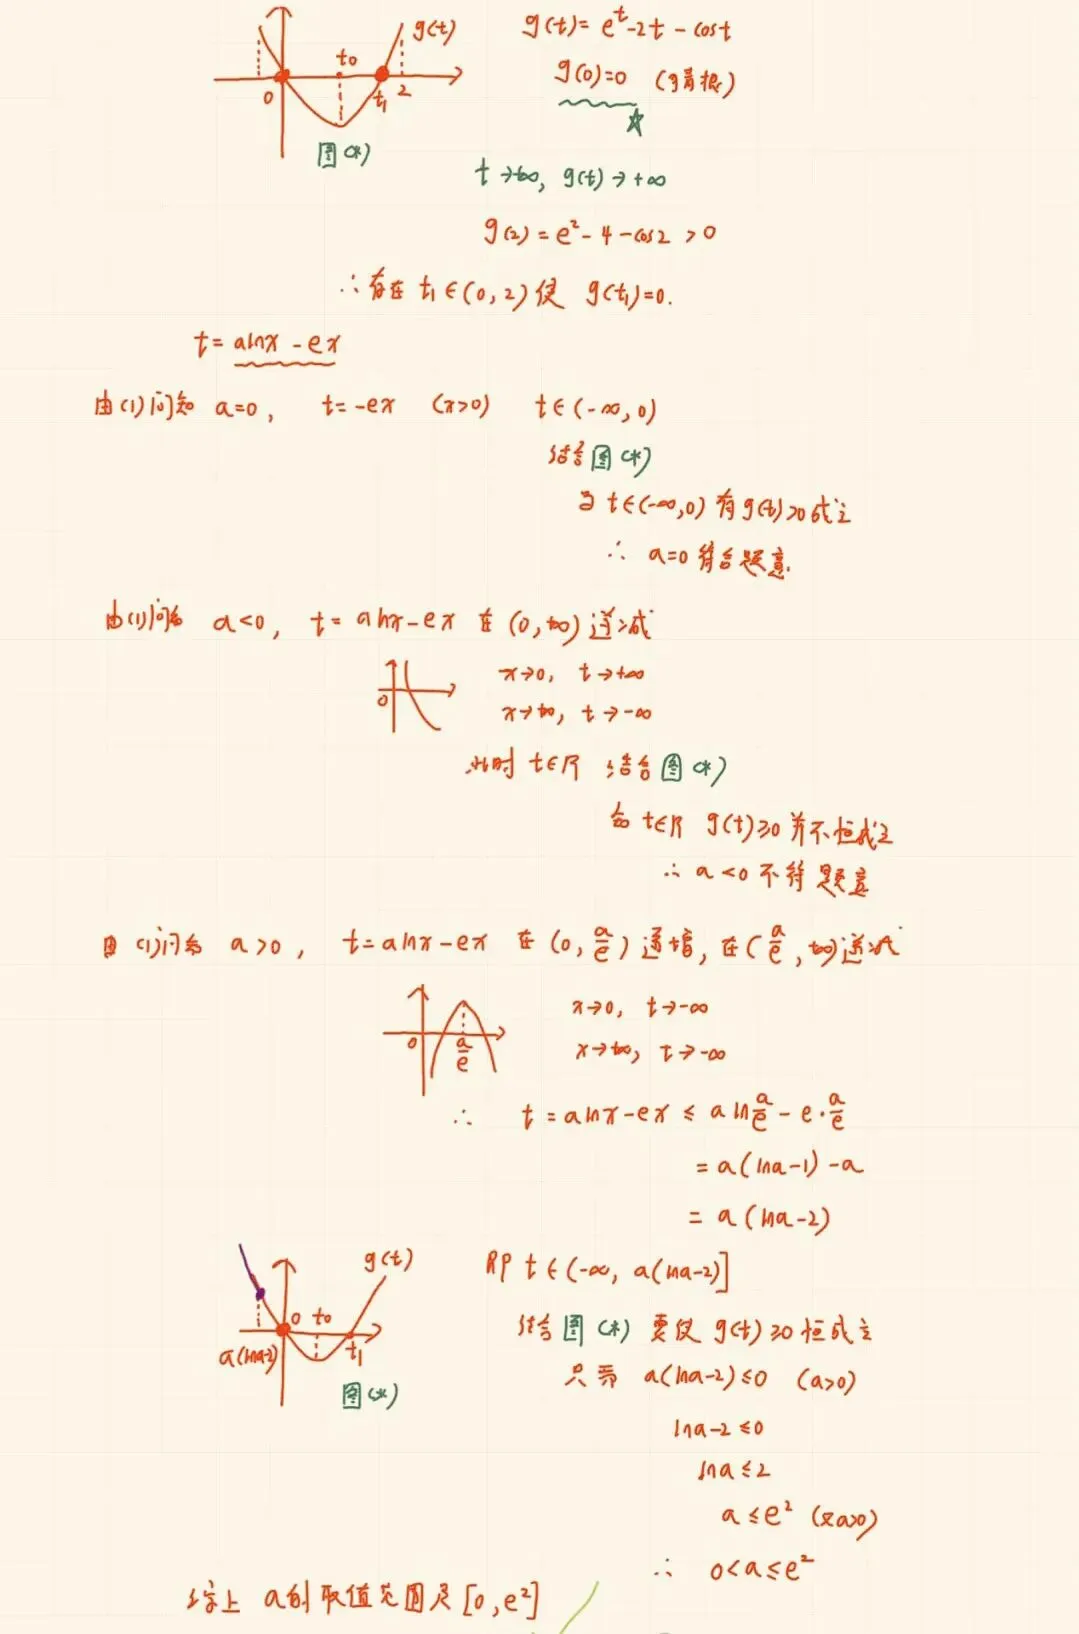 g(t)
g(t)=e^t-2t-cost
t₀
0
t₁
2
g(0)=0 (明显根)
图(*)
t→+∞, g(t)→+∞
g(2)=e²-4-cos2>0
∴存在t₁∈(0,2)使 g(t₁)=0.
t=alnx-ex
由(1)问知 a=0, t=-ex (x>0) t∈(-∞,0)
结合图(*)
t∈(-∞,0)有g(t)>0成立
∴ a=0符合题意.
由(1)问知 a<0, t=alnx-ex 在(0,+∞)递减
0
x→0, t→+∞
x→+∞, t→-∞
此时 t∈R 结合图(*)
知 t∈R g(t)≥0并不恒成立
∴ a<0不符题意
由(1)问知 a>0, t=alnx-ex 在(0,a/e)递增,在(a/e,+∞)递减
0
a/e
x→0, t→-∞
x→+∞, t→-∞
∴ t=alnx-ex≤aln a/e-e·a/e
=a(lna-1)-a
=a(lna-2)
g(t)
即 t∈(-∞, a(lna-2)]
0
t₀
t₁
a(lna-2)
图(*)
结合图(*)要使g(t)≥0恒成立
只需 a(lna-2)≤0 (a>0)
lna-2≤0
lna≤2
a≤e² (又a>0)
∴ 0<a≤e²
综上 a的取值范围是[0,e²]